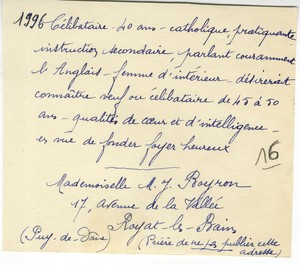 1996 Célibataire - 40 ans - catholique pratiquante
instruction secondaire, parlant couramment
l'Anglais - femme d'intérieur - désirerait
connaître veuf ou célibataire de 45 à 50
ans - qualités de cœur et d'intelligence -
en vue de fonder foyer heureux
16
Mademoiselle M. J. Boyron
17, avenue de la Vallée
Royat-les-Bains
(Puy-de-Dôme) (Prière de ne pas publier cette
adresse)